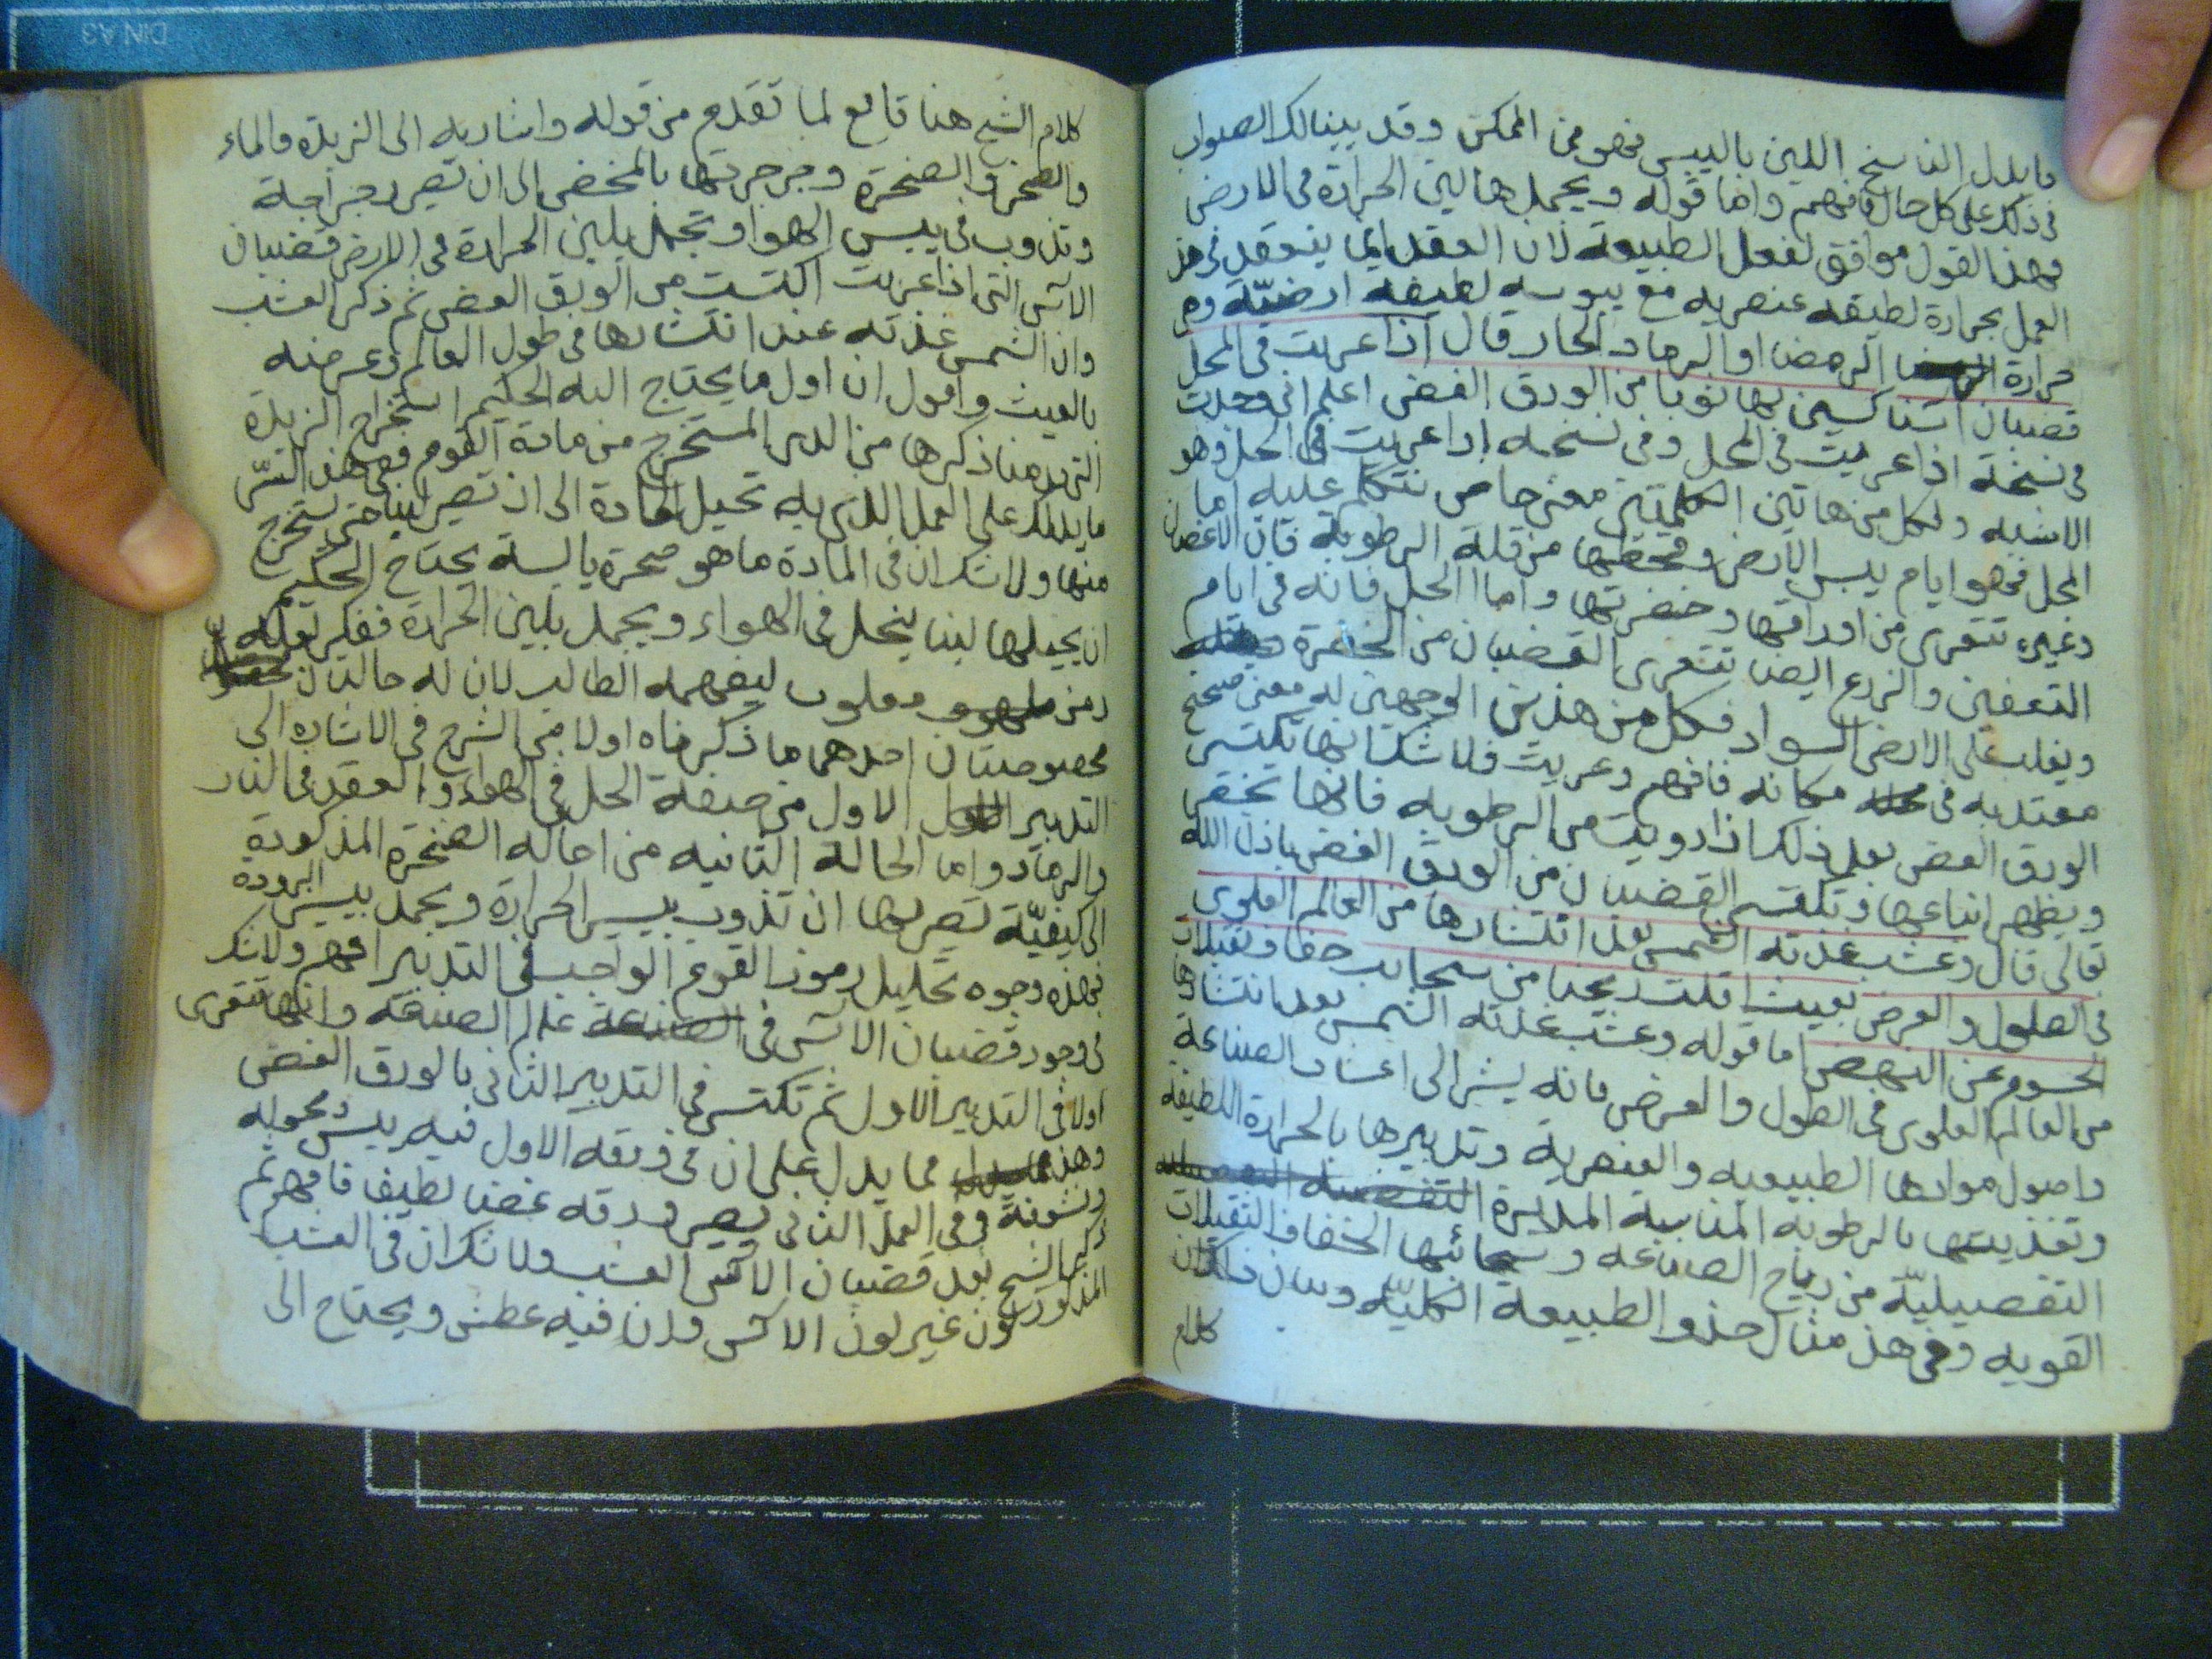 ما بدل الناسخ اللين باليبس فهو من الممكن وقد بينا لك الصواب
فى ذلك على كل حال فافهم واما قوله ويجمدها لين الحرارة فى الارض
فهذا القول موافق لفعل الطبيعة لان العقد انما ينعقد فى هذ
العمل بحرارة لطيفه عنصريه مع يبوسه لطيفه ارضيّة وهى
حرارة الرمضا او الرماد الحار قال اذا عريت فى المحل
قضبان اسنا كسين بها ثوبا من الورق الغض اعلم انى وجدت
فى نسخة اذا عريت فى المحل وفى نسخه اذا عريت فى الحل وهو
الاشبه ولكل من هاتين الكلمتين معنى خاص نتكلم عليه اما
المحل فهو ايام يبس الارض وقحطها من قلة الرطوبة فان الاغصان
وغيره تتعرى من اوراقها وخضرتها واما الحل فانه فى ايام
التعفين والزرع ايضا تتعرى القضبان من الخضرة
ويغلب على الارض السواد فكل من هذين الوجهين له معنى صحيح
معتد به فى مكانه فافهم وعريت فلا شك انها تكتسى
الورق الغض بعد ذلك اذا رويت من الرطوبه فانها تخضر
ويظهر اتباعها وتكتسى القضبان من الورق الغض باذن الله
تعالى قال وعشب غذته الشمس بعد انتشارها من العالم العلوى
فى الطول والعرض بغيث اقلت ريحنا من سحائب خفاف ثقيلات
الجسوم عن النهض اما قوله وعشب غذته الشمس بعد انتشارها
من العالم العلوى فى الطول والعرض فانه يشير الى اعشاب الصناعة
واصول موادها الطبيعيه والعنصرية وتدبيرها بالحرارة اللطيفة
وتغذيتها بالرطوبه المناسبة المدبرة
التفصيليّة من رياح الصناعه وسحائبها الخفاف الثقيلات
القويه وفى هذ مثال حذو الطبيعة الكليّه وبيان فلذلك
كلام
كلام الشيخ هنا تابع لما تقدم من قوله واشاربه الى الزبدة والماء
والصخر والصخرة وجرجرتها بالمخض الى ان تصير رجراجة
وتذوب فى يبس الهوا وتجمد بلين الحرارة فى الارض قضبان
الآس التى اذا عريت اكتست من الورق الغض ثم ذكر العشب
وان الشمس غذته عند انتشارها فى طول العالم وعرضه
بالغيث واقول ان اول ما يحتاج اليه الحكيم استخراج الزبدة
التى قدمنا ذكرها من الدر المستخرج من مادة القوم ففى هذ السّر
ما يدلك على العمل الذى به تحيل المادة الى ان تصير لبنا حتى تستخرج
منها ولا شك ان فى المادة ما هو صخرة يابسة يحتاج الحكيم
ان يحيلها لبنا ينحل فى الهواء ويجمد بلين الحرارة ففكر لعله
رمز مقلوب ليفهمه الطالب لان له حالتان
مخصوصتان احدهما ما ذكرناه اولا من الشرح فى الاشاره الى
التدبير الاول من صفة الحل فى الهواء والعقد فى النار
والرماد واما الحالة الثانيه من احاله الصخره المذكورة
الى كيفيّة تصير بها ان تذوب بيبس الحرارة ويجمد بيبس البرودة
فهذه وجوه تحليل رموز القوم الواجب فى التدبير افهم ولا شك
فى وجود قضبان الآس فى عالم الصنعه وانها تتعرى
اولا فى التدبير الاول ثم تكتسى فى التدبير الثانى بالورق الغض
وهذ مما يدل على ان فى ورقه الاول فيه يبس وقحوله
وخشونة وفى العمل الثانى يصير ورقه غضا لطيفا فافهم ثم
ذكر الشيخ بعد قضبان الآس العشب ولا شك ان فى العشب
المذكور لون غير لون الآس وان فيه عطش ويحتاج الى